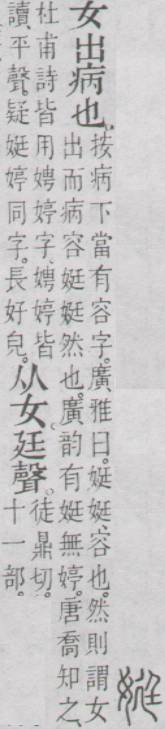 女出病也。
按病下當有容字。廣雅曰。娗娗、容也。然則謂女
出而病容娗娗然也。廣韵有娗無婷。唐喬知之、
杜甫詩皆用娉婷字、娉婷皆
讀平聲。疑娗婷同字。長好皃。
从女。廷聲。
徒鼎切。
十一部。
娗